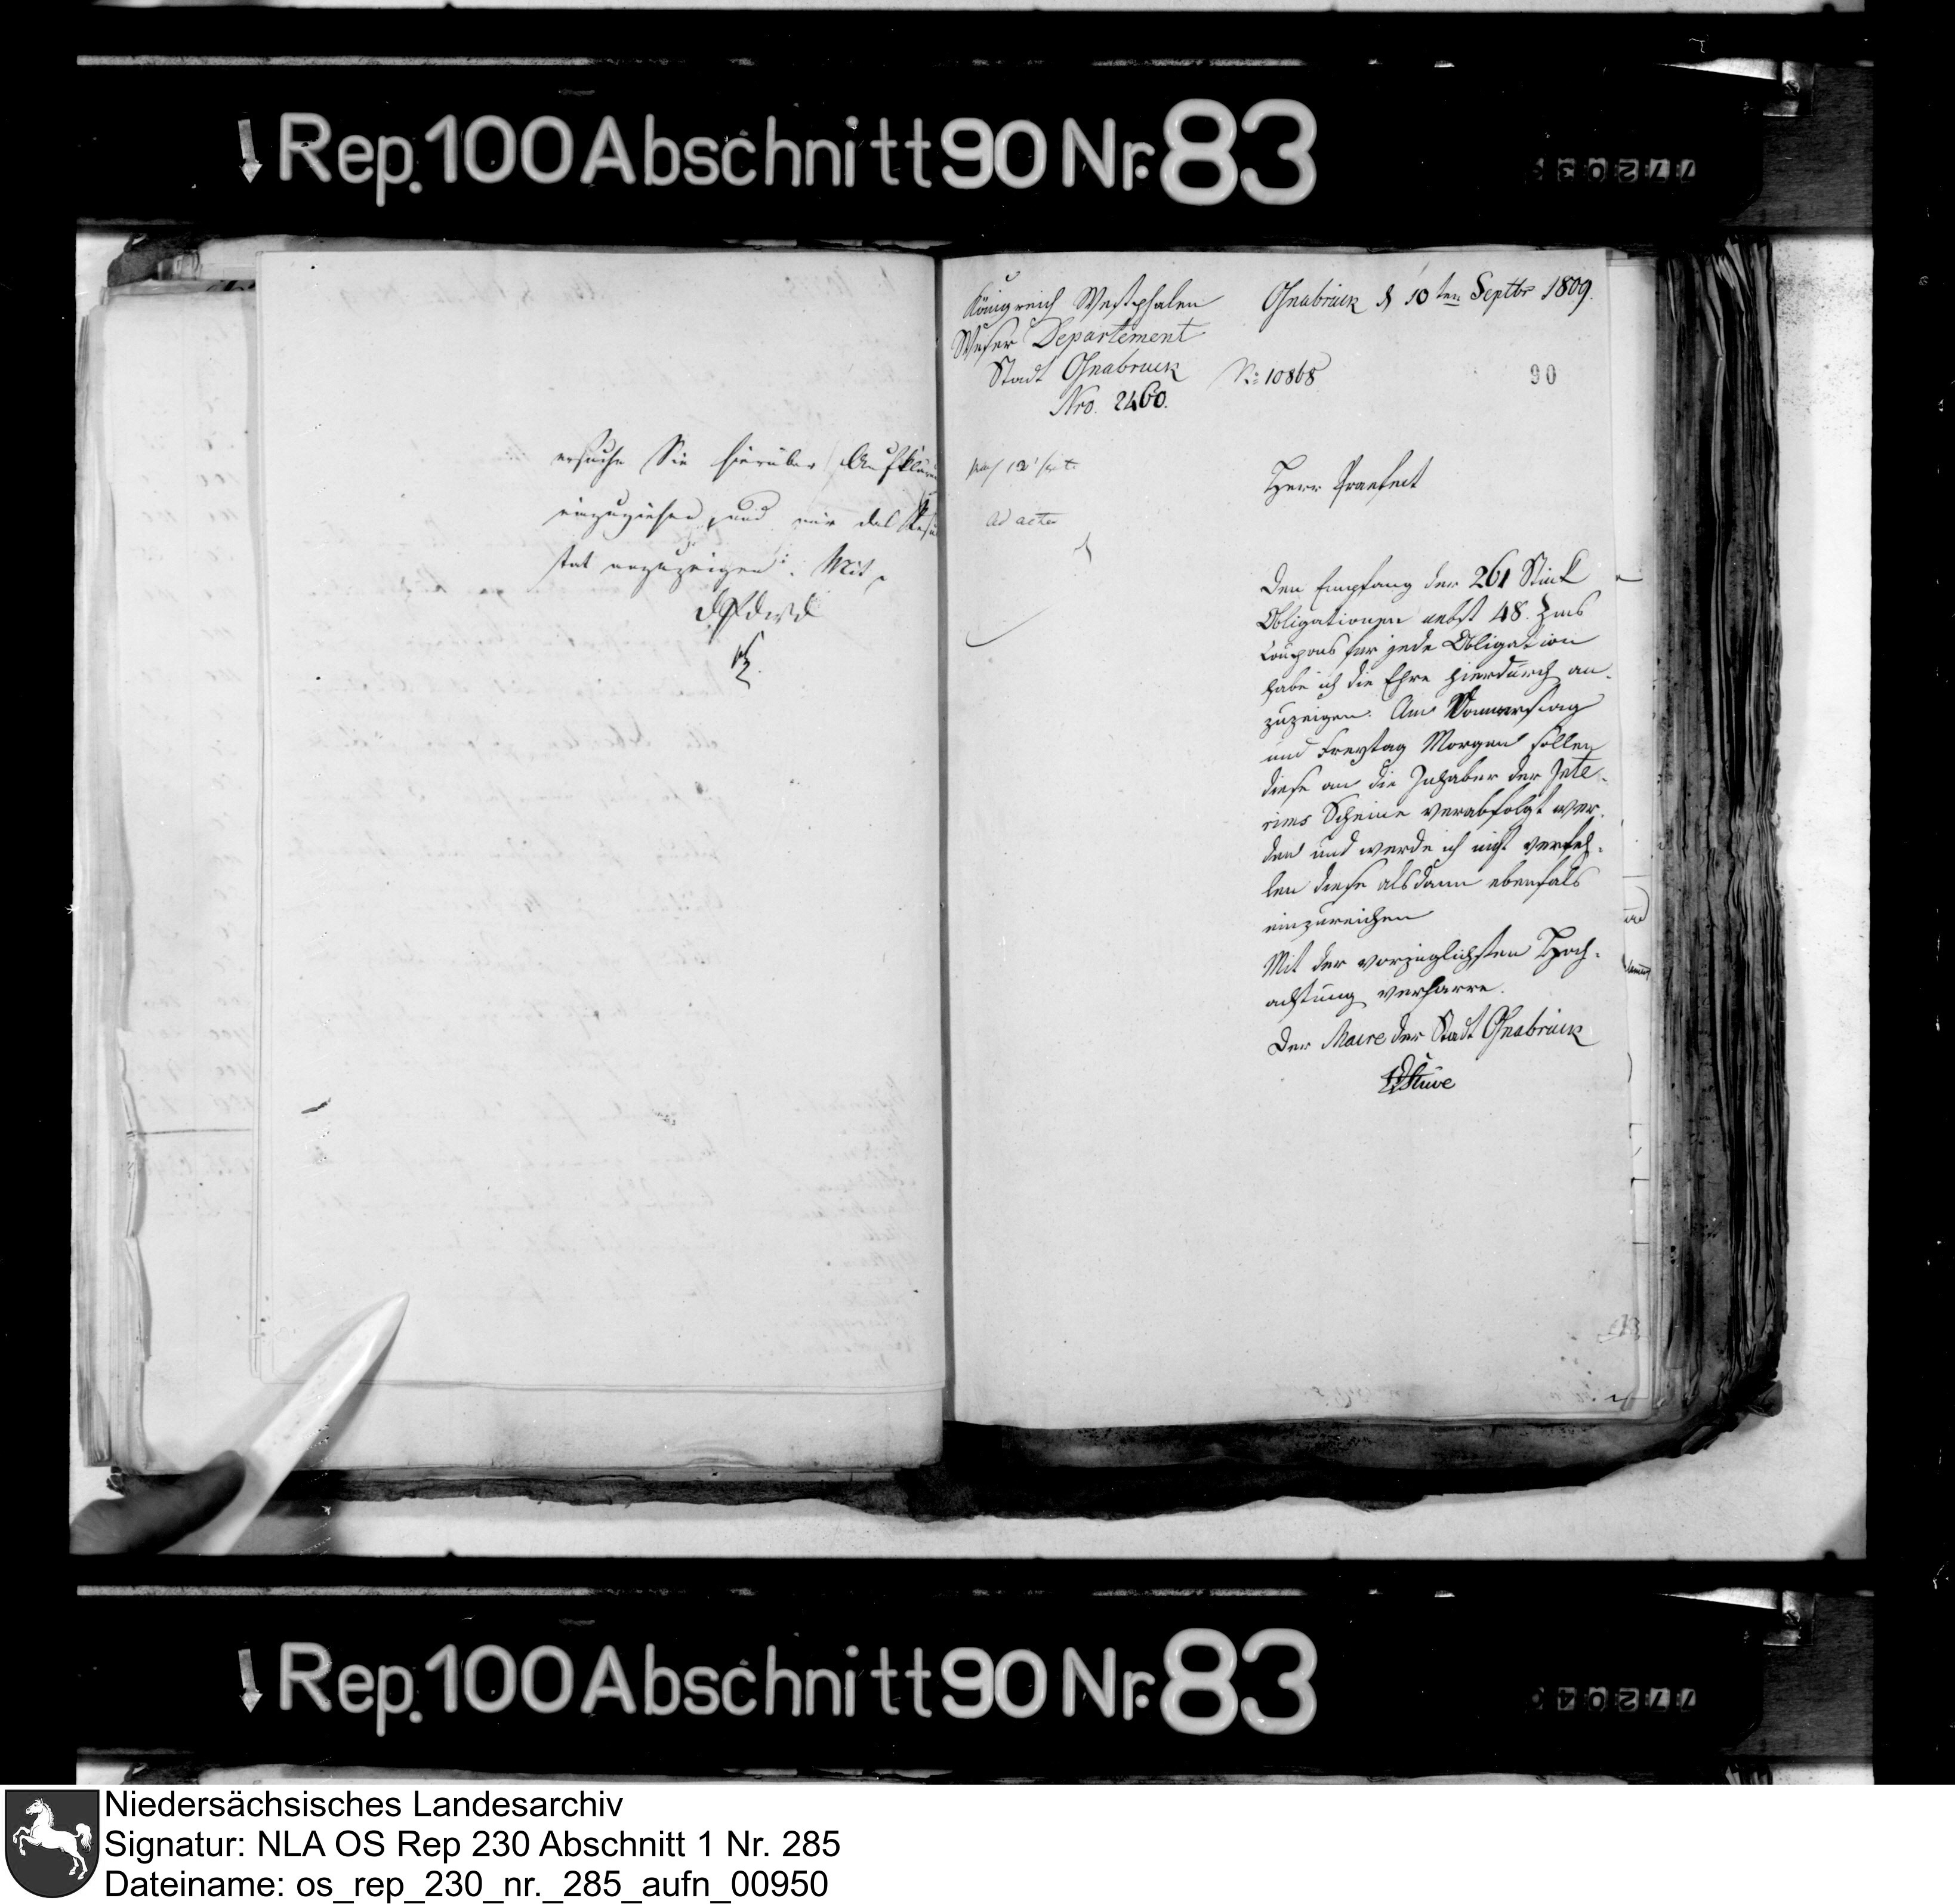 Rep. 100 Abschnitt 90 Nr. 83
77203
ersuche Sie hierüber Aufklärung
einzuziehen, und mir das Resul
tat anzuzeigen. Mit
Königreich Westphalen
Weser Departement
Stadt Osnabrück
Nro. 2460.
Osnabrück d 10ten Septbr 1809.
No 10868
90
ad acta
Herr Praefect
Den Empfang der 261 Stück
Obligationen nebst 48. Zins
Coupons für jede Obligation
habe ich die Ehre hierdurch an-
zuzeigen. Am Donnerstag
und Freytag Morgen sollen
diese an die Inhaber der Inte-
rims Scheine verabfolgt wer-
den und werde ich nicht verfeh-
len diese alsdann ebenfals
einzureichen
Mit der vorzüglichsten Hoch-
achtung verharre.
Der Maire der Stadt Osnabrück
Stüve
Rep. 100 Abschnitt 90 Nr. 83
77204
Niedersächsisches Landesarchiv
Signatur: NLA OS Rep 230 Abschnitt 1 Nr. 285
Dateiname: os_rep_230_nr._285_aufn_00950